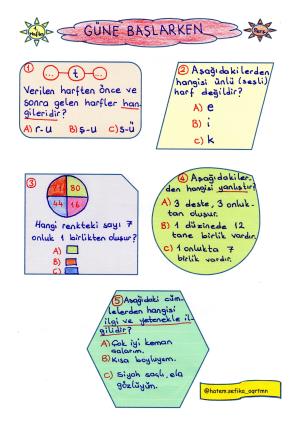 1. Hafta
GÜNE BAŞLARKEN
Pers.
1
t
Verilen harften önce ve
sonra gelen harfler han-
gileridir?
A) r-u B) ş-u C) s-ü
2 Aşağıdakilerden
hangisi ünlü (sesli)
harf değildir?
A) e
B) i
C) k
3
71 80
44 16
Hangi renkteki sayı 7
onluk 1 birlikten oluşur?
A)
B)
C)
4 Aşağıdakiler-
den hangisi yanlıştır?
A) 3 deste, 3 onluk-
tan oluşur.
B) 1 düzinede 12
tane birlik vardır.
C) 1 onlukta 7
birlik vardır.
5 Aşağıdaki cüm-
lelerden hangisi
ilgi ve yetenekle il-
gilidir?
A) Çok iyi keman
çalarım.
B) Kısa boyluyum.
C) Siyah saçlı, ela
gözlüyüm.
@hatem.sefika_ogrtmn